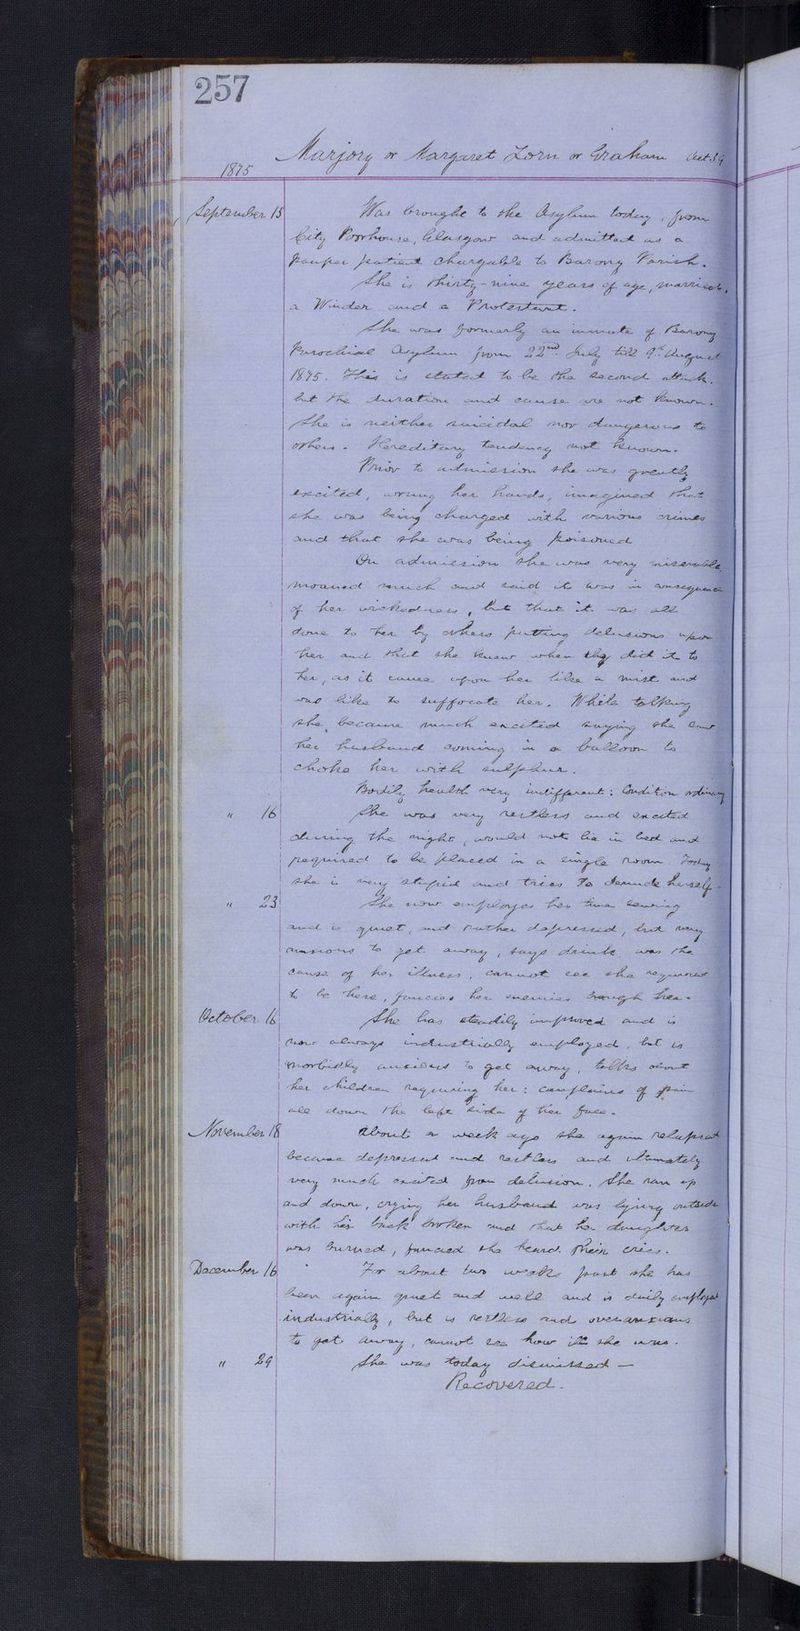 257
1875 Marjory or Margaret Lorn or Graham Aet. 39
September 15 Was brought to the Asylum today, from
City Poorhouse, Glasgow and admitted as a
pauper patient chargable to Barony Parish.
She is thirty-nine years of age, married,
a Winder and a Protestant.
She was formerly an inmate of Barony
Parochial Asylum from 22nd July till 9th August
1875. This is stated to be the second attack.
but the duration and cause are not known.
She is neither suicidal nor dangerous to
others. Hereditary tendency not known.
Prior to admission she was greatly
excited, wrung her hands, imagined that
she was being charged with various crimes
and that she was being poisoned
On admission she was very miserable
moaned much and said it was in consequence
of her wickedness, but that it was all
done to her by others putting delusions upon
her and that she knew when they did it to
her, as it came upon her like a mist and
was like to suffocate her. While talking
she became much excited saying she saw
her husband coming in a balloon to
choke her with sulphur.
Bodily health very indifferent: Condition ordinary
" 16 She was very restless and excited
during the night, would not lie in bed and
required to be placed in a single room. Today
she is very stupid and tries to denude herself.
" 23 She now employs her time sewing
and is quiet, and rather depressed, but very
anxious to get away, says drink was the
cause of her illness, cannot see she required
to be here, fancies her enemies brought her.
October 16 She has steadily improved and is
now always industriously employed, but is
morbidly anxious to get away, talks about
her children requiring her: complains of pain
all down the left side of her face.
November 18 About a week ago she again relapsed
became depressed and restless and ultimately
very much excited from delusion. She ran up
and down, crying her husband was lying outside
with his back broken and that her daughter
was burned, fancied she heard their cries.
December 16 For about two weeks past she has
been again quiet and well and is daily employed
industrially, but is restless and overanxious
to get away, cannot see how ill she was.
" 29 She was today dismissed —
Recovered.